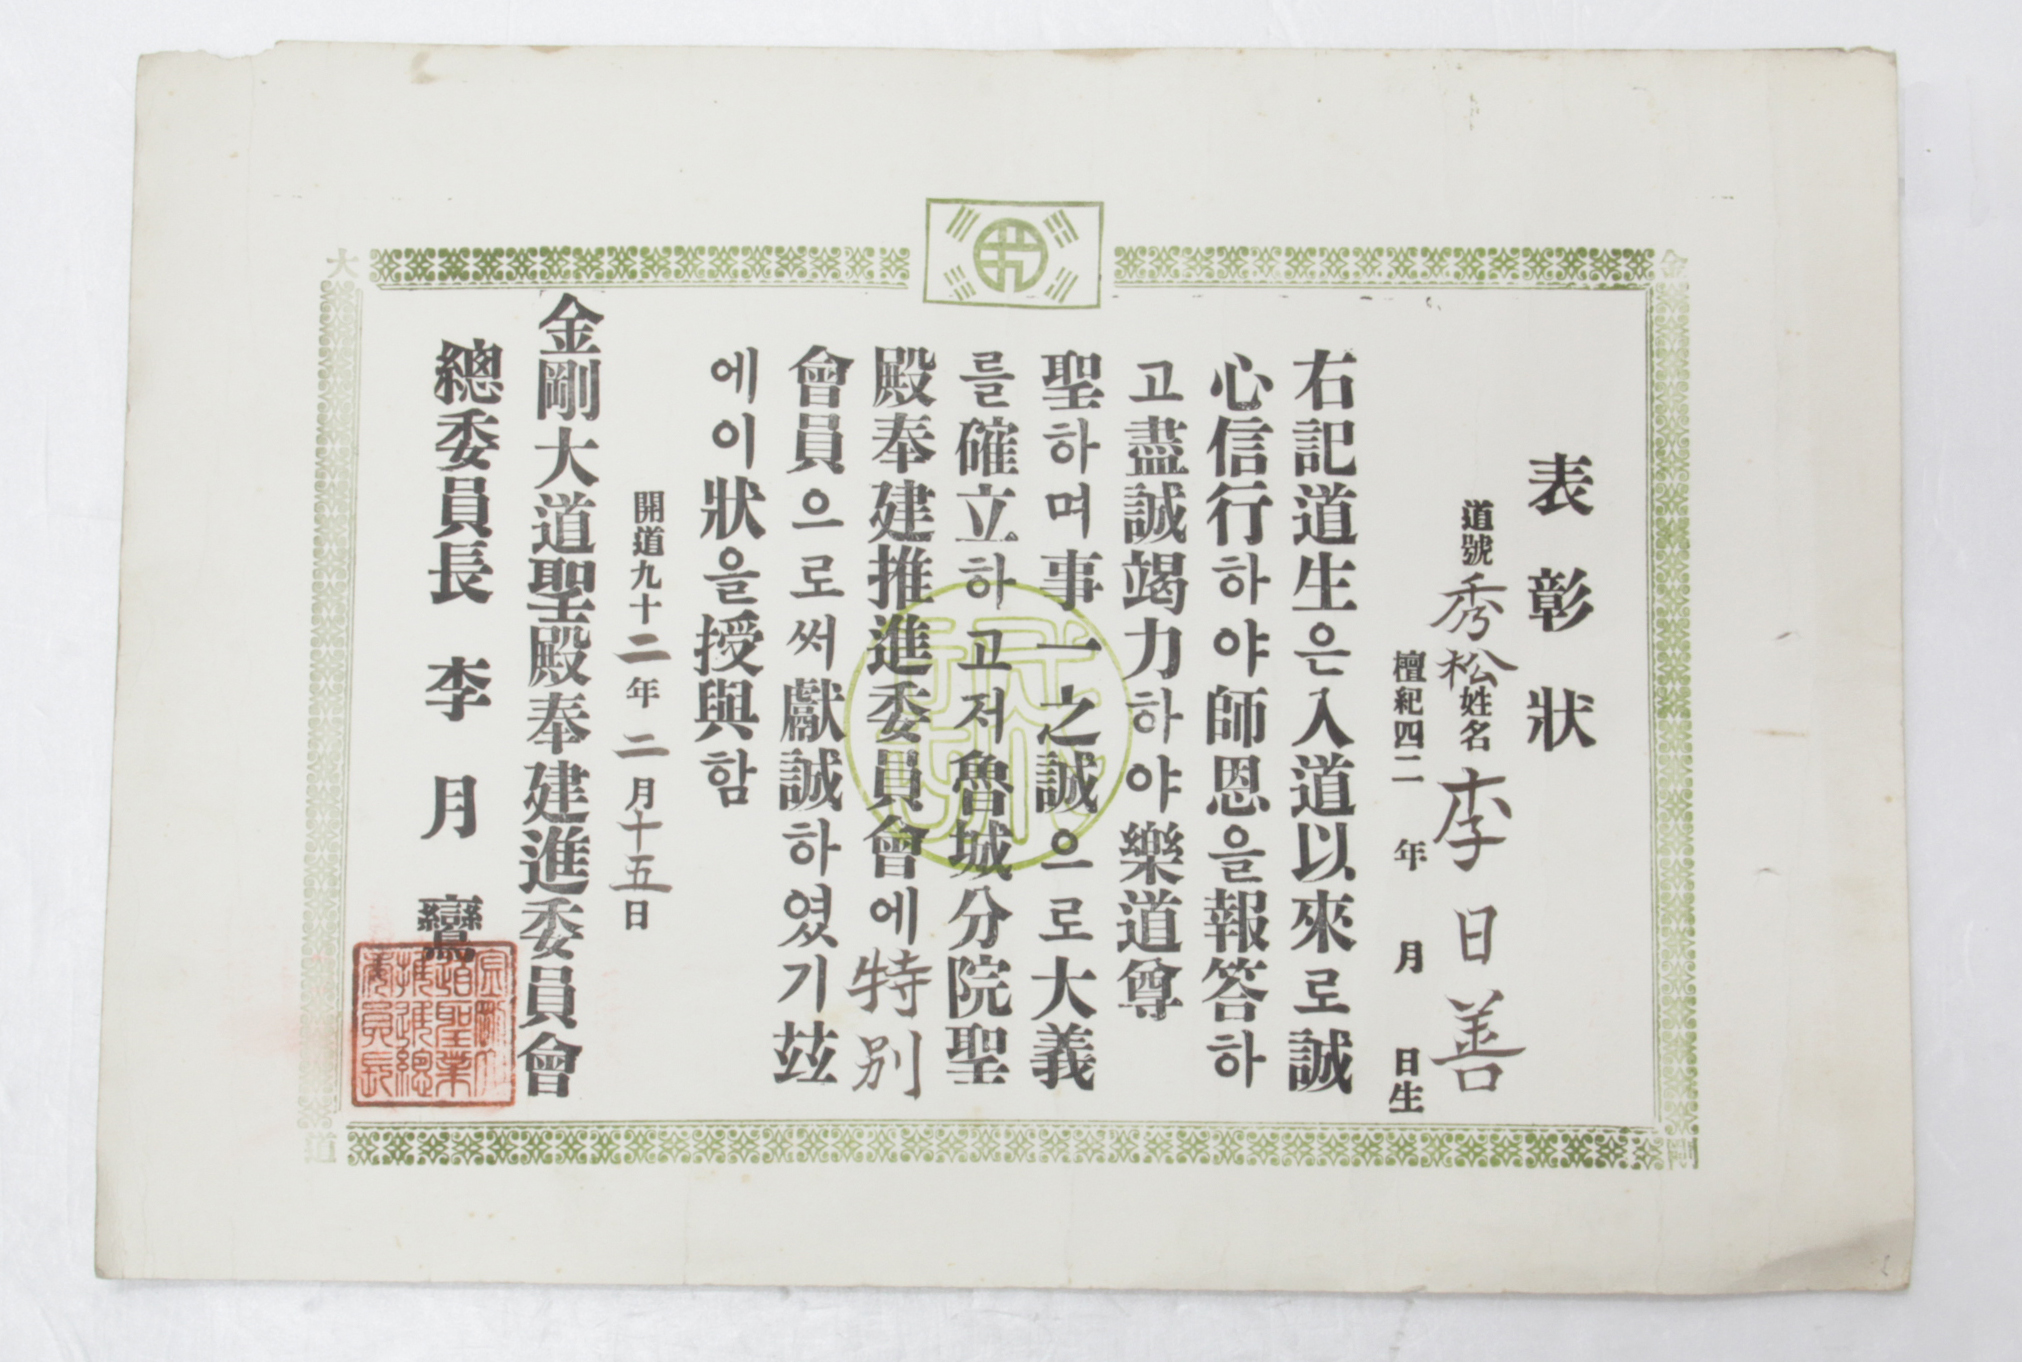 表彰狀
道號 秀松 姓名 李日善
檀紀四二 年 月 日生
右記道生은入道以來로誠
心信行하야師恩을報答하
고盡誠竭力하야樂道尊
聖하며事一之誠으로大義
를確立하고저魯城分院聖
殿奉建推進委員會에特別
會員으로써獻誠하였기玆
에이狀을授與함
開道九十二年二月十五日
金剛大道聖殿奉建進委員會
總委員長 李月鸞
金
剛
大
道
誠
金剛大
道聖業
推進總
委員長